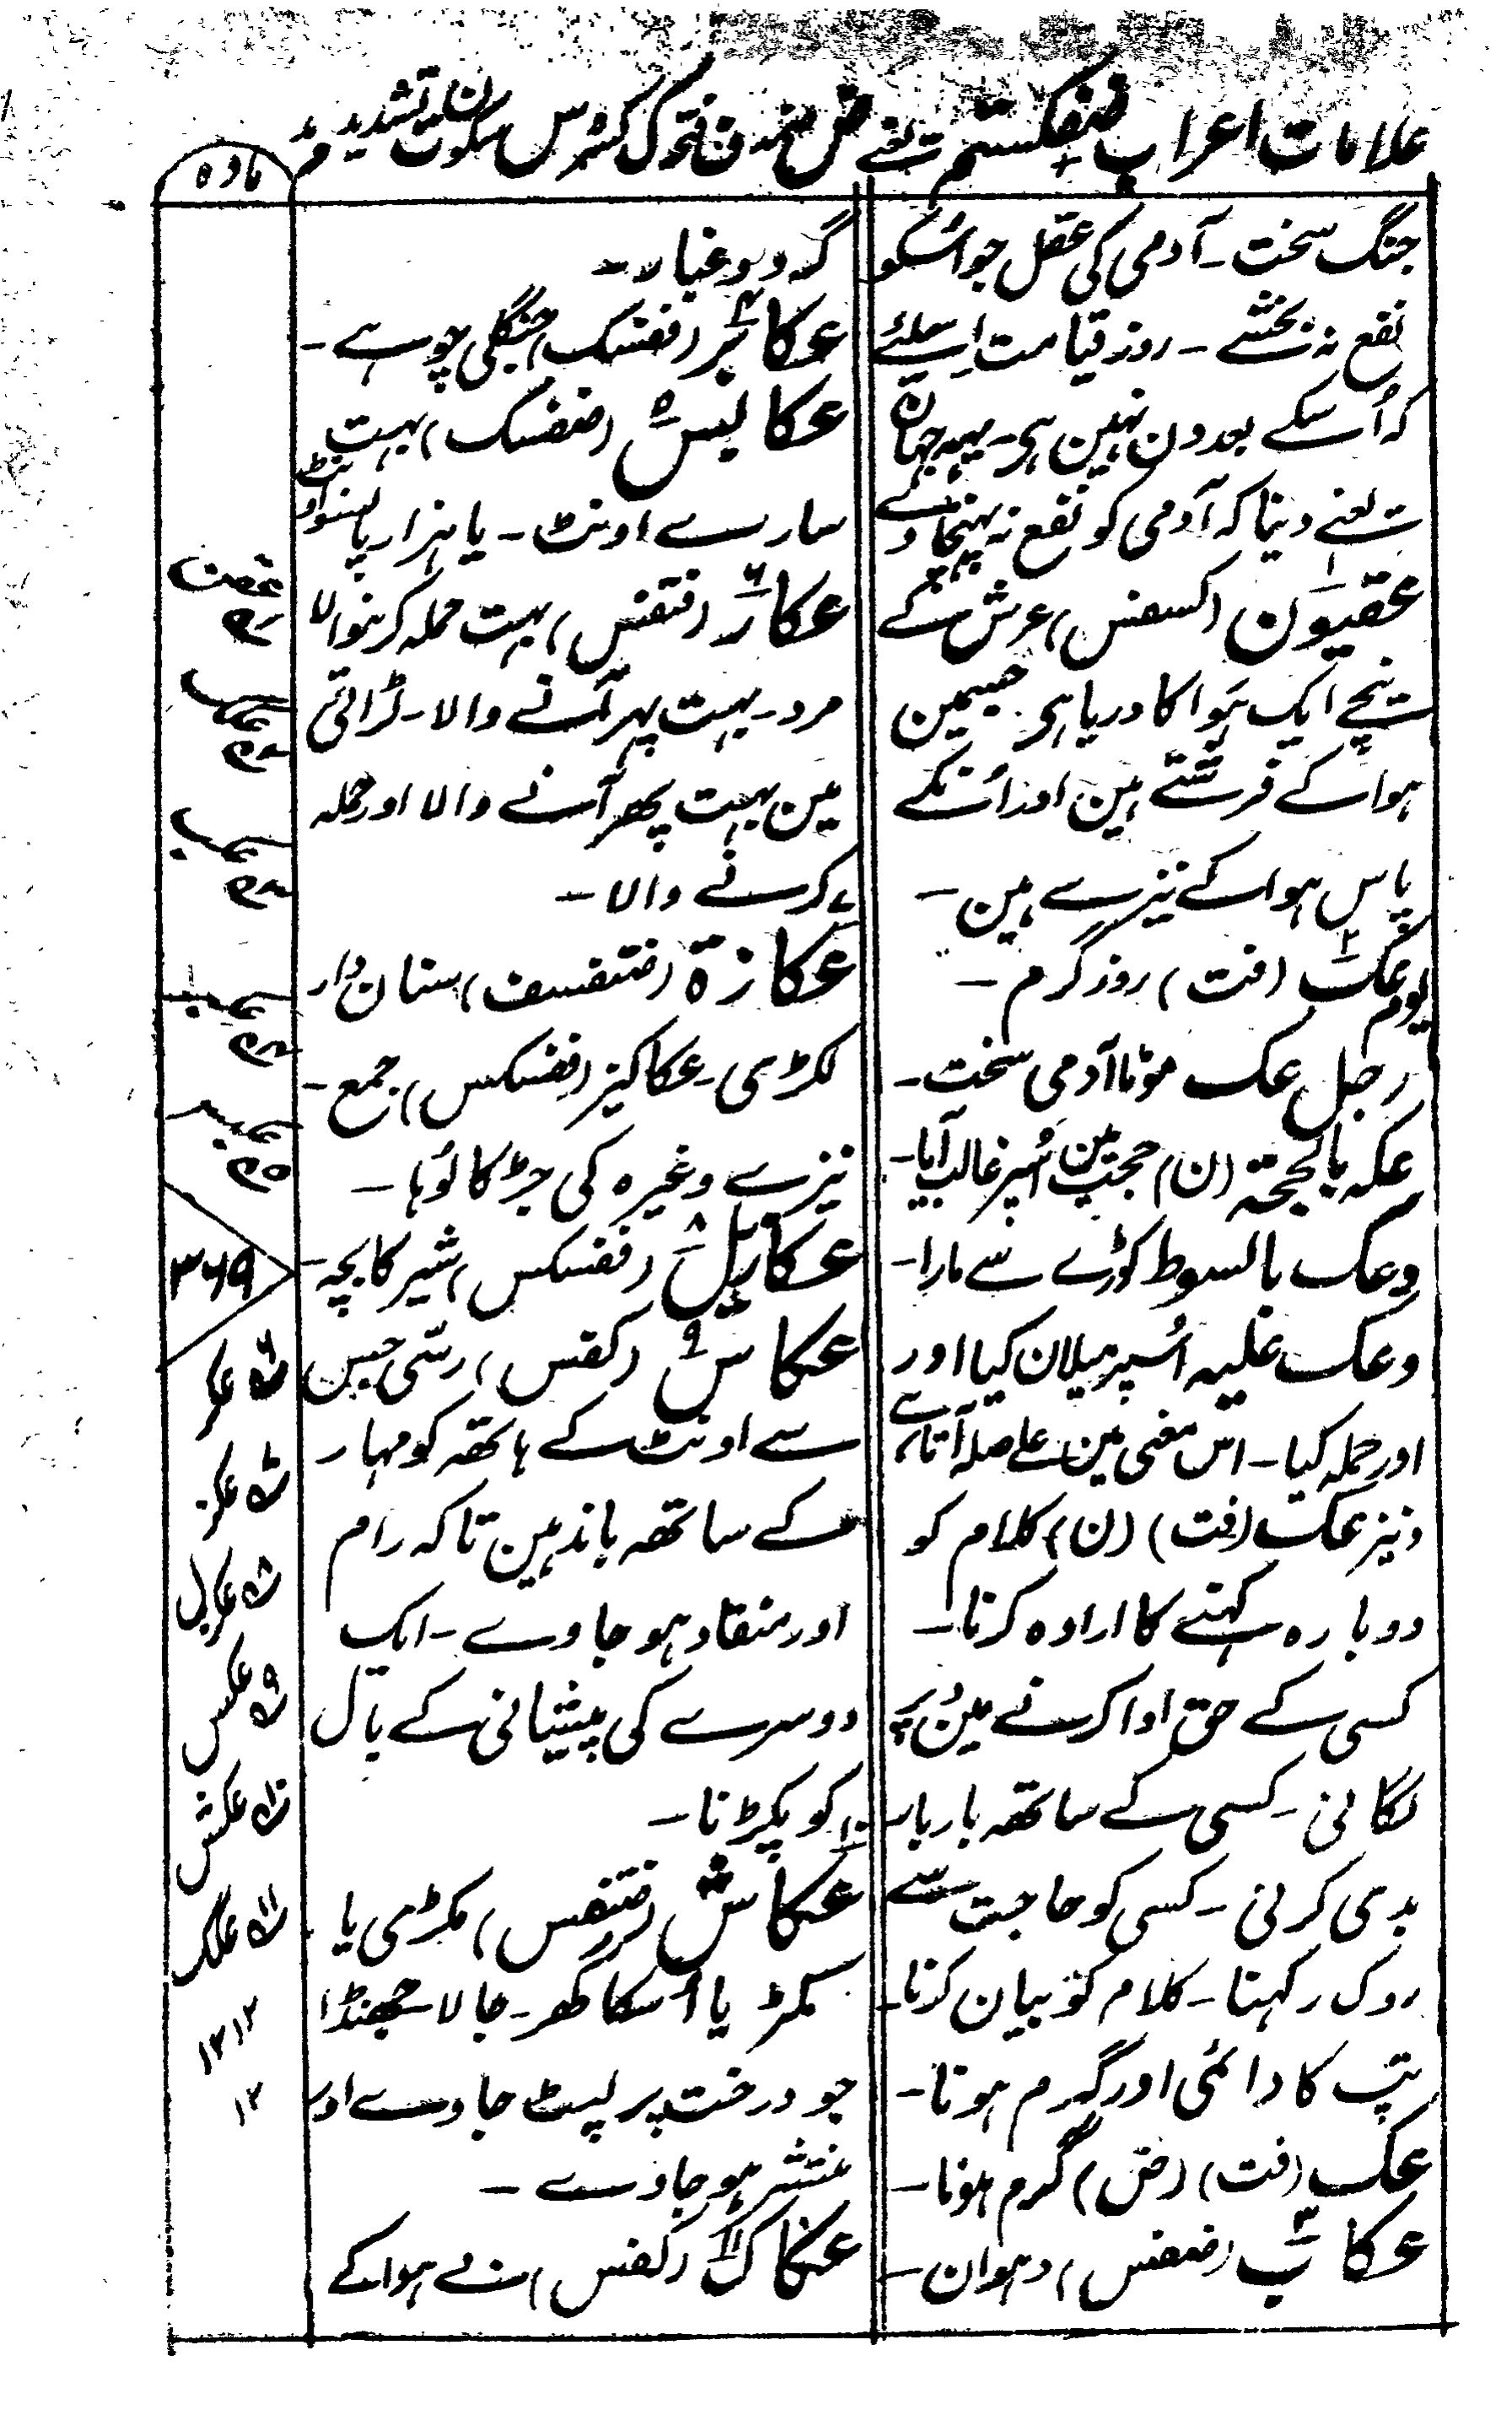 علامات اعراب ضفکستم یعنے ض ضمہ ف فتحہ ک کسرہ س سکون ت تشدید م مد
مادہ
جنگ سخت ۔ آدمی کی عقل جو اُسکو
نفع نہ بخشے ۔ روز قیامت اسلئے
کہ اُسکے بعد دن نہین ہی ۔ یہہ جہان
یعنے دنیا کہ آدمی کو نفع نہ پہنچاوے
عقیون (کسفس) عرش کے
نیچے ایک ہوا کا دریا ہی جسمین
ہوا کے فرشتے ہین اور اُنکے
پاس ہوا کے نیزے ہین ۔
یوم عک (فت) روز گرم ۔
رجل عک موٹا آدمی سخت ۔
عکہ بالحجتہ (ن) حجت مین اُسپر غالب آیا ۔
وعک بالسوط کوڑے سے مارا ۔
وعک علیہ اُسپر میلان کیا اور
اور حملہ کیا ۔ اس معنی مین علے صلہ آتا ہے
ونیز عک (فت) (ن) کلام کو
دوبارہ کہنے کا ارادہ کرنا ۔
کسی کے حق ادا کرنے مین دیر
لگانی ۔ کسی کے ساتھہ باربار
بدی کرنی ۔ کسی کو حاجت سے
روک رکہنا ۔ کلام کو بیان کرنا ۔
تپ کا دائمی اور گرم ہونا ۔
عک (فت) (ض) گرم ہونا ۔
عکاب ۳ (ضفس) دہوان ۔
گرد و غبار ۔
عکابر ۴ (ففسک) جنگلی چوہے ۔
عکابس ۵ (ضفسک) بہت
سارے اونٹ ۔ یا ہزار یا سو اونٹ
عکار ۶ (فتفس) بہت حملہ کرنیوالا
مرد ۔ بہت پہر آنے والا ۔ لڑائی
مین بہت پھر آنے والا اور حملہ
کرنے والا ۔
عکازۃ (فتفسف) سنان دار
لکڑی ۔ عکاکیز (ففسکس) جمع ۔
نیزے وغیرہ کی جڑ کا لوہا ۔
عکابیل ۸ (ففسکس) شیر کا بچہ ۔
عکاس ۹ (کفس) رسی جس
سے اونٹ کے ہاتھہ کو مہار
کے ساتھہ باندہین تاکہ رام
اور منقاد ہو جاوے ۔ ایک
دوسرے کی پیشانی کے بال
کو پکڑنا ۔
عکاش ۱۰ (فتفس) مکڑی یا
مکڑ یا اُسکا گھر ۔ جالا ۔ جھنڈا
جو درخت پر لپٹ جاوے اور
منتشر ہو جاوے ۔
عکاک ۱۱ (کفس) بے ہوا کے
۳۶۹
۶ عکر
۷ عکز
۸ عکبل
۹ عکس
۱۰ عکش
۱۱ عکک
۱۳۱۲
۱۳